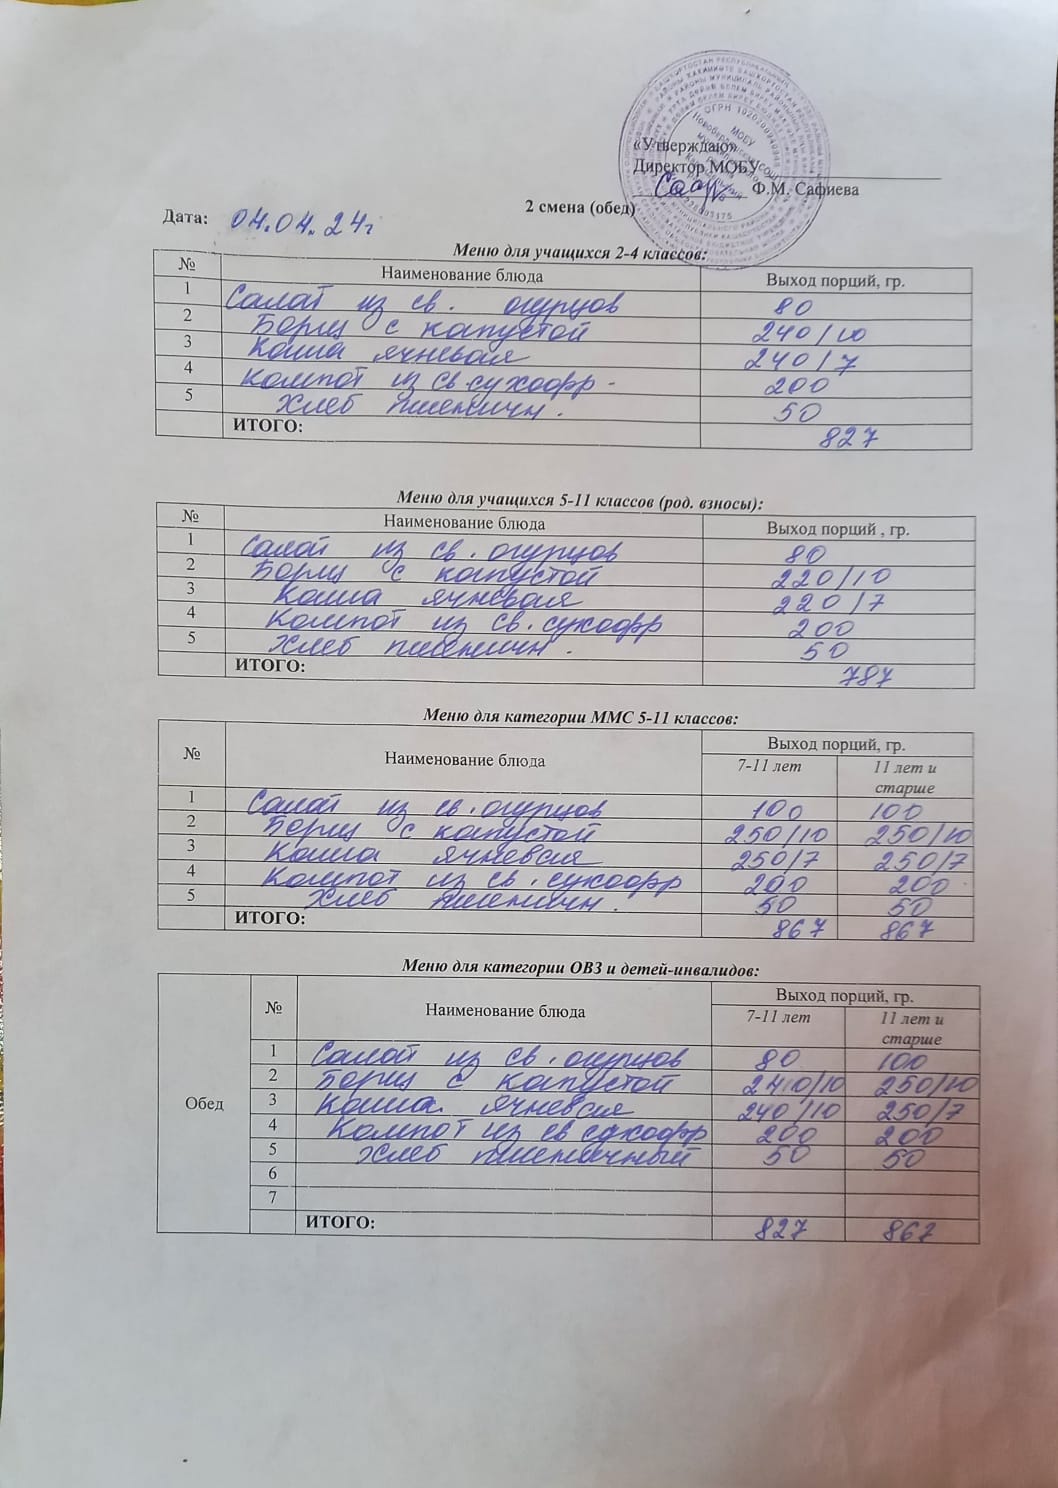 ОГРН 1020200940948
МОБУ
«Утверждаю»
Директор МОБУ
Ф.М. Сафиева
2 смена (обед)
Дата: 04.04.24г
Меню для учащихся 2-4 классов:
№ Наименование блюда Выход порций, гр.
1 Салат из св. огурцов 80
2 Борщ с капустой 240/10
3 Каша ячневая 240/7
4 Компот из св. сухофр - 200
5 Хлеб пшеничн. 50
ИТОГО: 827
Меню для учащихся 5-11 классов (род. взносы):
№ Наименование блюда Выход порций , гр.
1 Салат из св. огурцов 80
2 Борщ с капустой 220/10
3 Каша ячневая 220/7
4 Компот из св. сухофр 200
5 Хлеб пшеничн. 50
ИТОГО: 787
Меню для категории ММС 5-11 классов:
№ Наименование блюда Выход порций, гр.
7-11 лет 11 лет и
старше
1 Салат из св. огурцов 100 100
2 Борщ с капустой 250/10 250/10
3 Каша ячневая 250/7 250/7
4 Компот из св. сухофр 200 200
5 Хлеб пшеничн. 50 50
ИТОГО: 867 867
Меню для категории ОВЗ и детей-инвалидов:
№ Наименование блюда Выход порций, гр.
7-11 лет 11 лет и
старше
Обед
1 Салат из св. огурцов 80 100
2 Борщ с капустой 240/10 250/10
3 Каша ячневая 240/10 250/7
4 Компот из св сухофр 200 200
5 Хлеб пшеничный 50 50
6
7
ИТОГО: 827 867